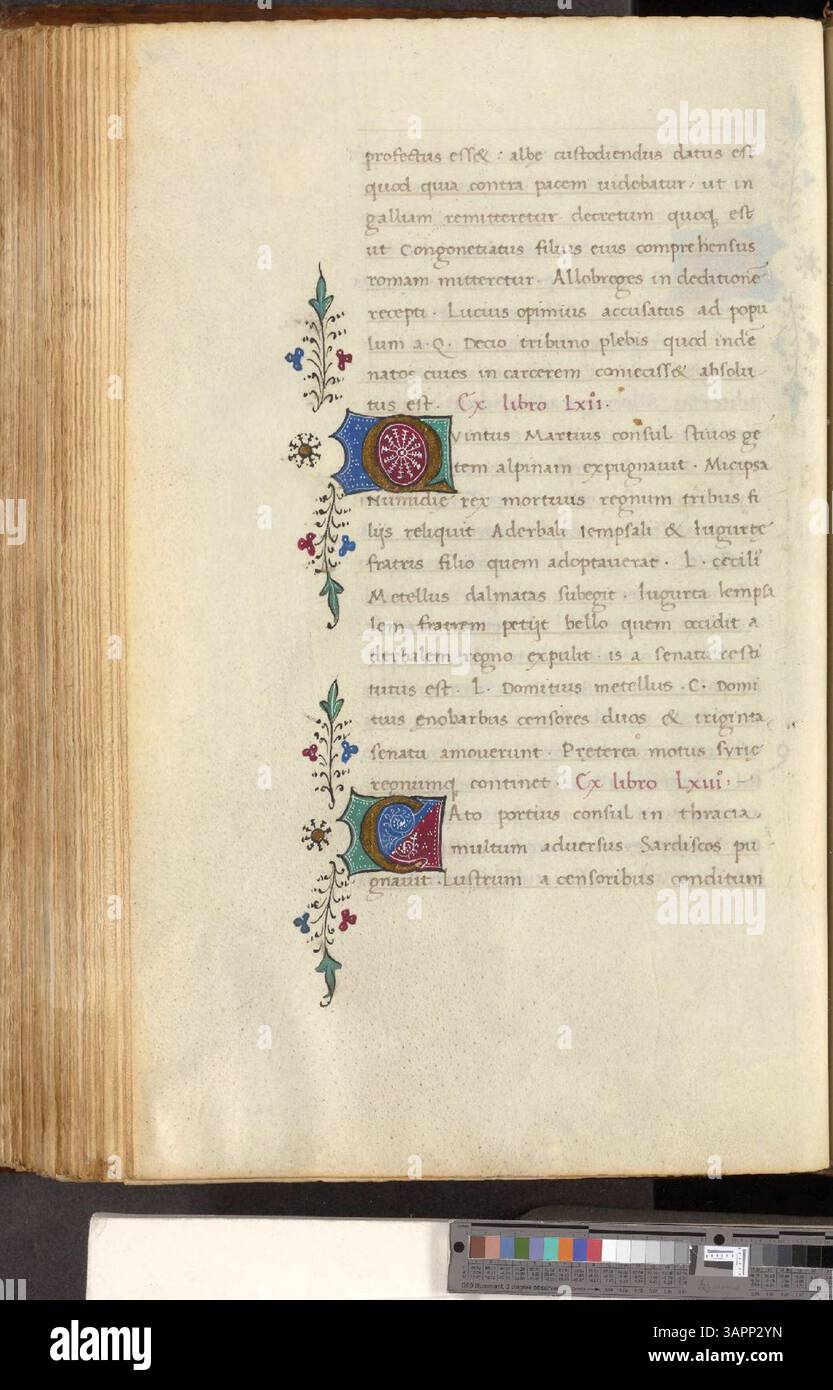 profectus ess& : albe custodiendus datus est
quod quia contra pacem uidebatur · ut in
galliam remitteretur decretum quoq; est
ut Congonetiatus filius eius comprehensus
romam mitteretur · Allobroges in deditionē
recepti · Lucius opimius accusatus ad popu
lum a · Q · Decio tribuno plebis quod indē
natos ciues in carcerem coniecisse& absolu
tus est · Ex libro Lxii ·
QVintus Martius consul stiuos ge
tem alpinam expugnauit · Micipsa
Numidie rex mortuus regnum tribus fi
lijs reliquit Aderbali Iempsali & Iugurte
fratris filio quem adoptauerat · L · cecili
Metellus dalmatas subegit · Iugurta Iempsa
lem fratrem petijt bello quem occidit a
derbalem regno expulit · is a senatu resti
tutus est · L · Domitius metellus · C · Domi
tius enobarbus censores duos & triginta
senatu amouerunt · Preterea motus syrie
regnumq; continet · Ex libro Lxiii ·
CAto portius consul in thracia
multum aduersus Sardiscos pu
gnauit · Lustrum a censoribus conditum
alamy
Image ID: 3APP2YN
www.alamy.com